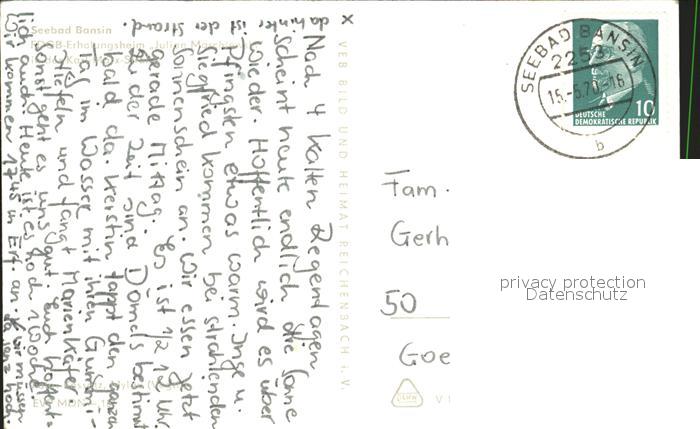 Seebad Bansin
FDGB-Erholungsheim
x
da hinten ist der Strand.
Nach 4 kalten Regentagen
scheint heute endlich die Sonne
wieder. Hoffentlich wird es über
Pfingsten etwas warm. Inge u.
Siegfried kommen bei strahlenden
Sonnenschein an. Wir essen jetzt
gerade Mittag. Es ist 1/2 1 Uhr.
Zu der Zeit sind Dömels bestimmt
bald da. Kerstin tappt den ganzen
Tag im Wasser mit ihren Gummi-
stiefeln und fängt Marienkäfer.
Sonst geht es uns gut. Euch hoffent-
lich auch. Heute ist es noch 1 Woche.
Wir kommen 17.45 in Erf. an.
VEB BILD UND HEIMAT REICHENBACH i. V.
SEEBAD BANSIN
2253
15.-5.70-16
b
10
DEUTSCHE
DEMOKRATISCHE REPUBLIK
Fam.
Gerh
50
Goe
privacy protection
Datenschutz